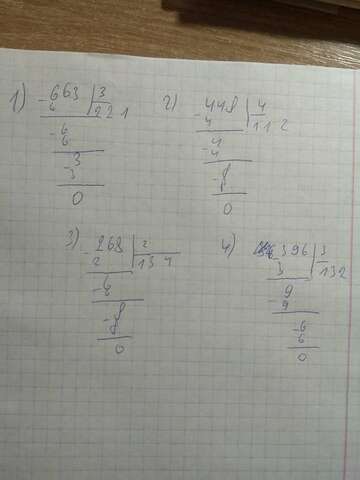 1) -663 | 3
6 221
-6
6
-3
3
0
2) -448 | 4
4 112
-4
4
-8
8
0
3) -268 | 2
2 134
-6
6
-8
8
0
4) 396 | 3
3 132
-9
9
-6
6
0